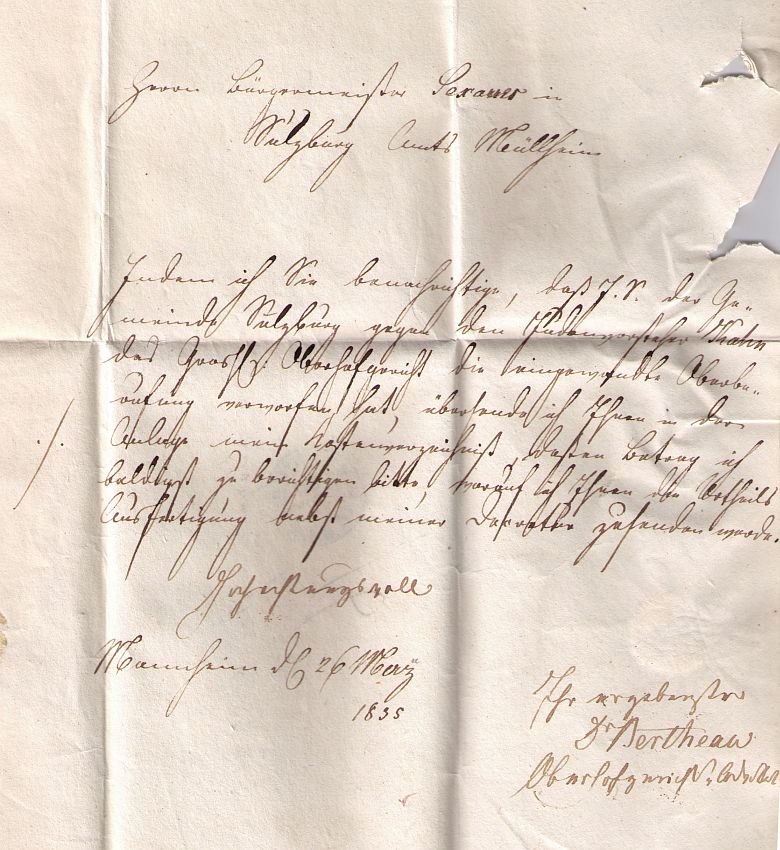 Herrn Bürgermeister Sexauer in
Sulzburg Amts Müllheim
Indem ich Sie benachrichtige, daß J. S. der Ge-
meinde Sulzburg gegen den Judenvorsteher Kahn
das Grosh. Oberhofgericht die eingewandte Oberbe-
rufung verworfen hat, übersende ich Ihnen in der
./. Anlage mein Kostenverzeichniß, dessen Betrag ich
baldigst zu berichtigen bitte, worauf ich Ihnen die Urtheils
Ausfertigung nebst meiner zusenden werde.
Hochachtungsvoll
Mannheim d 26 Merz
1835
Ihr ergebenster
Dr Bertheau
Oberhofgerichts